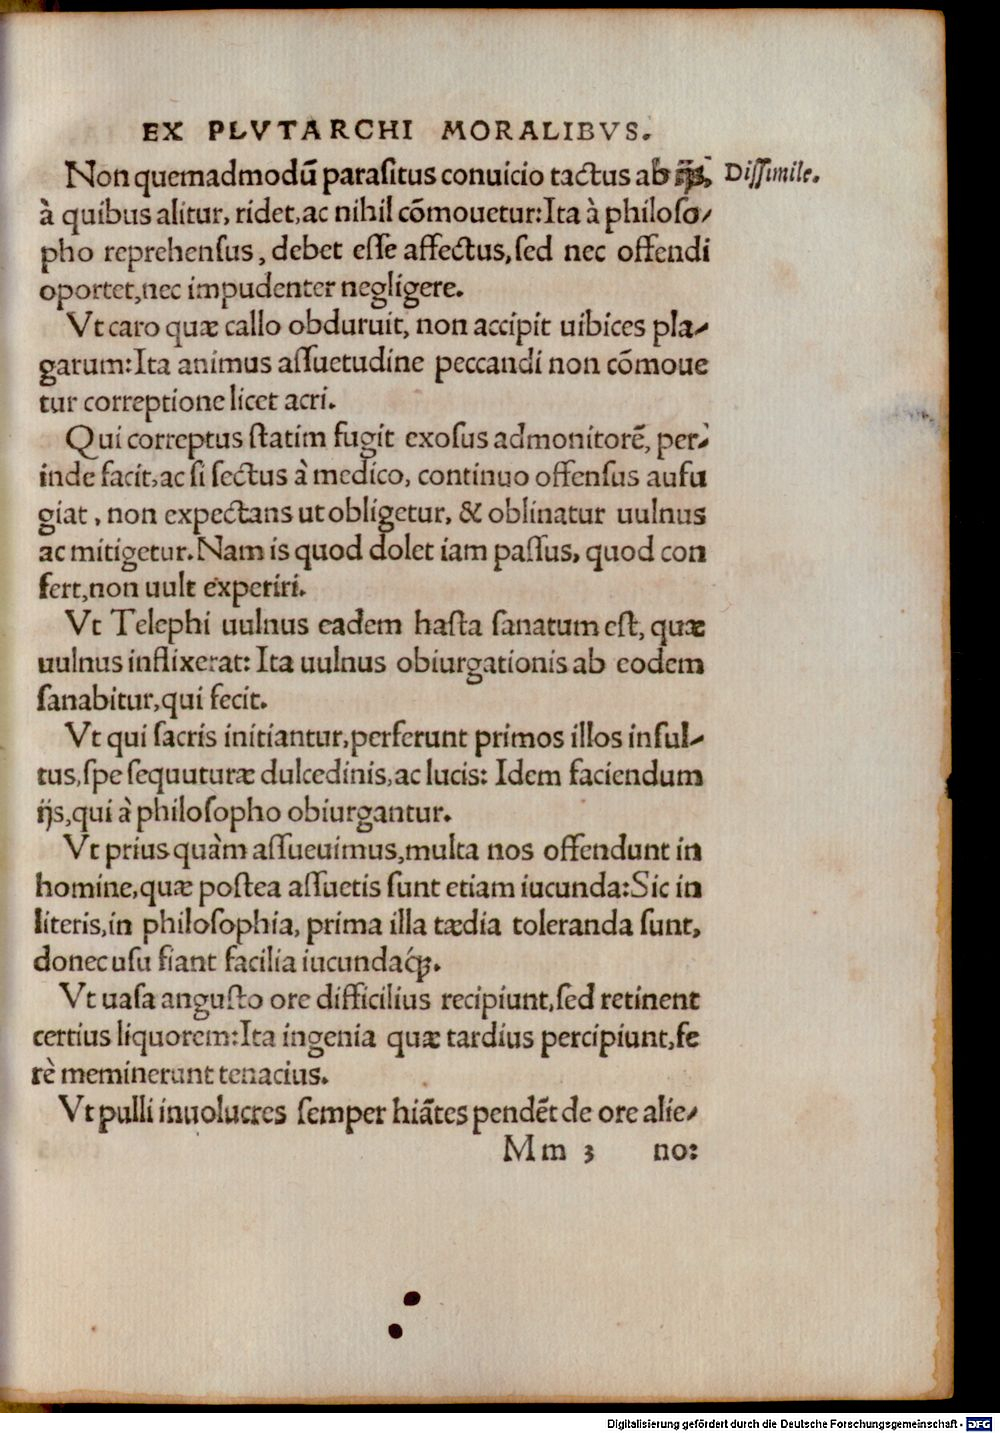 EX PLVTARCHI MORALIBVS.
Non quemadmodū parasitus conuicio tactus ab ijs, Dissimile.
à quibus alitur, ridet, ac nihil cōmouetur: Ita à philoso-
pho reprehensus, debet esse affectus, sed nec offendi
oportet, nec impudenter negligere.
Vt caro quæ callo obduruit, non accipit uibices pla-
garum: Ita animus assuetudine peccandi non cōmoue
tur correptione licet acri.
Qui correptus statim fugit exosus admonitorē, per-
inde facit, ac si sectus à medico, continuo offensus aufu
giat, non expectans ut obligetur, & oblinatur uulnus
ac mitigetur. Nam is quod dolet iam passus, quod con
fert, non uult experiri.
Vt Telephi uulnus eadem hasta sanatum est, quæ
uulnus inflixerat: Ita uulnus obiurgationis ab eodem
sanabitur, qui fecit.
Vt qui sacris initiantur, perferunt primos illos insul-
tus, spe sequuturæ dulcedinis, ac lucis: Idem faciendum
ijs, qui à philosopho obiurgantur.
Vt prius quàm assueuimus, multa nos offendunt in
homine, quæ postea assuetis sunt etiam iucunda: Sic in
literis, in philosophia, prima illa tædia toleranda sunt,
donec usu fiant facilia iucundaq́ꝫ.
Vt uasa angusto ore difficilius recipiunt, sed retinent
certius liquorem: Ita ingenia quæ tardius percipiunt, fe
rè meminerunt tenacius.
Vt pulli inuolucres semper hiātes pendēt de ore alie-
Mm 3 no:
Digitalisierung gefördert durch die Deutsche Forschungsgemeinschaft - DFG